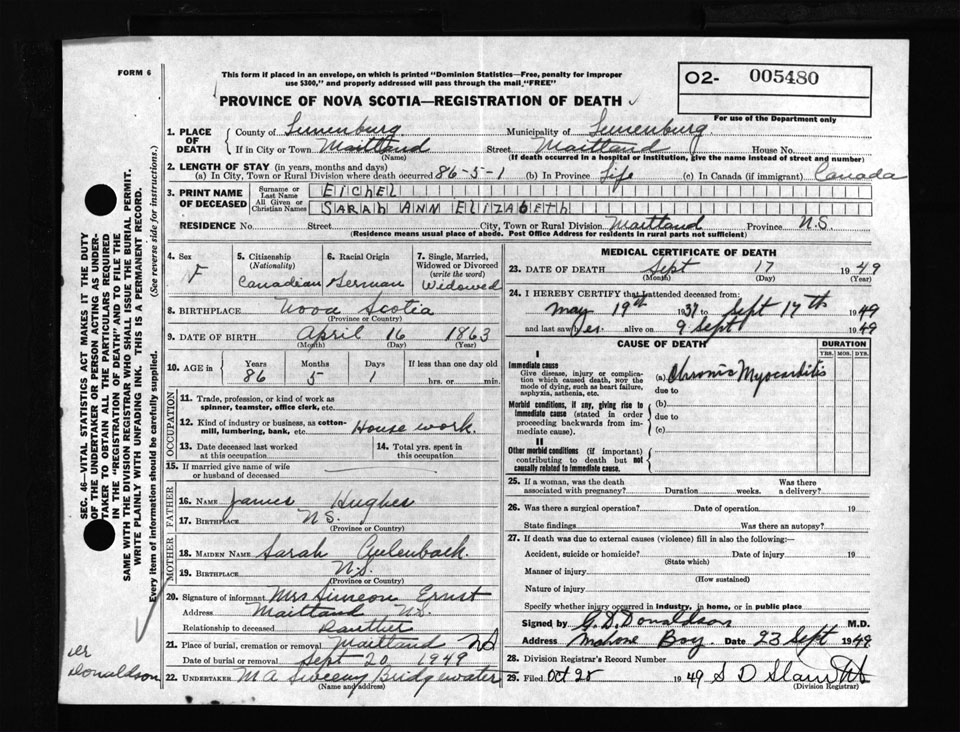 FORM 6
This form if placed in an envelope, on which is printed "Dominion Statistics—Free, penalty for improper
use $300," and properly addressed will pass through the mail "FREE"
O2- 005480
For use of the Department only
PROVINCE OF NOVA SCOTIA—REGISTRATION OF DEATH
SEC. 46—VITAL STATISTICS ACT MAKES IT THE DUTY
OF THE UNDERTAKER OR PERSON ACTING AS UNDER-
TAKER TO OBTAIN ALL THE PARTICULARS REQUIRED
IN THE "REGISTRATION OF DEATH" AND TO FILE THE
SAME WITH THE DIVISION REGISTRAR WHO SHALL ISSUE THE BURIAL PERMIT.
WRITE PLAINLY WITH UNFADING INK. THIS IS A PERMANENT RECORD.
Every item of information should be carefully supplied. (See reverse side for instructions.)
1. PLACE OF DEATH
County of Lunenburg Municipality of Lunenburg
If in City or Town Maitland Street Maitland House No.
(Name) (If death occurred in a hospital or institution, give the name instead of street and number)
2. LENGTH OF STAY (in years, months and days)
(a) In City, Town or Rural Division where death occurred 86-5-1 (b) In Province Life (c) In Canada (if immigrant) Canada
3. PRINT NAME OF DECEASED
Surname or Last Name EICHEL
All Given or Christian Names SARAH ANN ELIZABETH
RESIDENCE No. Street City, Town or Rural Division Maitland Province N.S.
(Residence means usual place of abode. Post Office Address for residents in rural parts not sufficient)
4. Sex F
5. Citizenship (Nationality) Canadian
6. Racial Origin German
7. Single, Married, Widowed or Divorced (write the word) Widowed
8. BIRTHPLACE Nova Scotia
(Province or Country)
9. DATE OF BIRTH April 16 1863
(Month) (Day) (Year)
10. AGE in Years 86 Months 5 Days 1 If less than one day old
hrs. or min.
OCCUPATION
11. Trade, profession, or kind of work as
spinner, teamster, office clerk, etc.
12. Kind of industry or business, as cotton-
mill, lumbering, bank, etc. House work.
13. Date deceased last worked
at this occupation
14. Total yrs. spent in
this occupation
15. If married give name of wife
or husband of deceased
FATHER
16. NAME James Hughes
17. BIRTHPLACE N.S.
(Province or Country)
MOTHER
18. MAIDEN NAME Sarah Aulenback.
19. BIRTHPLACE N.S.
(Province or Country)
20. Signature of informant Mrs Simeon Ernst
Address Maitland N.S.
Relationship to deceased Dauther
21. Place of burial, cremation or removal Maitland NS
Date of burial or removal Sept 20 1949
22. UNDERTAKER M A Sweeny Bridgewater
(Name and address)
Donaldson
MEDICAL CERTIFICATE OF DEATH
23. DATE OF DEATH Sept 17 1949
(Month) (Day) (Year)
24. I HEREBY CERTIFY that I attended deceased from:
May 19th 1937 to Sept 17th 1949
and last saw her alive on 9 Sept 1949
CAUSE OF DEATH DURATION
YRS. MOS. DYS.
I
Immediate cause
Give disease, injury or complica-
tion which caused death, NOT the
mode of dying, such as heart failure,
asphyxia, asthenia, etc.
(a) Chronic Myocarditis
due to
Morbid conditions, if any, giving rise to
immediate cause (stated in order
proceeding backwards from im-
mediate cause).
(b)
due to
(c)
II
Other morbid conditions (if important)
contributing to death but not
causally related to immediate cause.
25. If a woman, was the death
associated with pregnancy? Duration weeks. Was there
a delivery?
26. Was there a surgical operation? Date of operation 19
State findings Was there an autopsy?
27. If death was due to external causes (violence) fill in also the following:—
Accident, suicide or homicide? Date of injury 19
(State which)
Manner of injury
(How sustained)
Nature of injury
Specify whether injury occurred in industry, in home, or in public place
Signed by G. D. Donaldson M.D.
Address Mahone Bay Date 23 Sept 1949
28. Division Registrar's Record Number
29. Filed Oct 28 1949 S D
(Division Registrar)